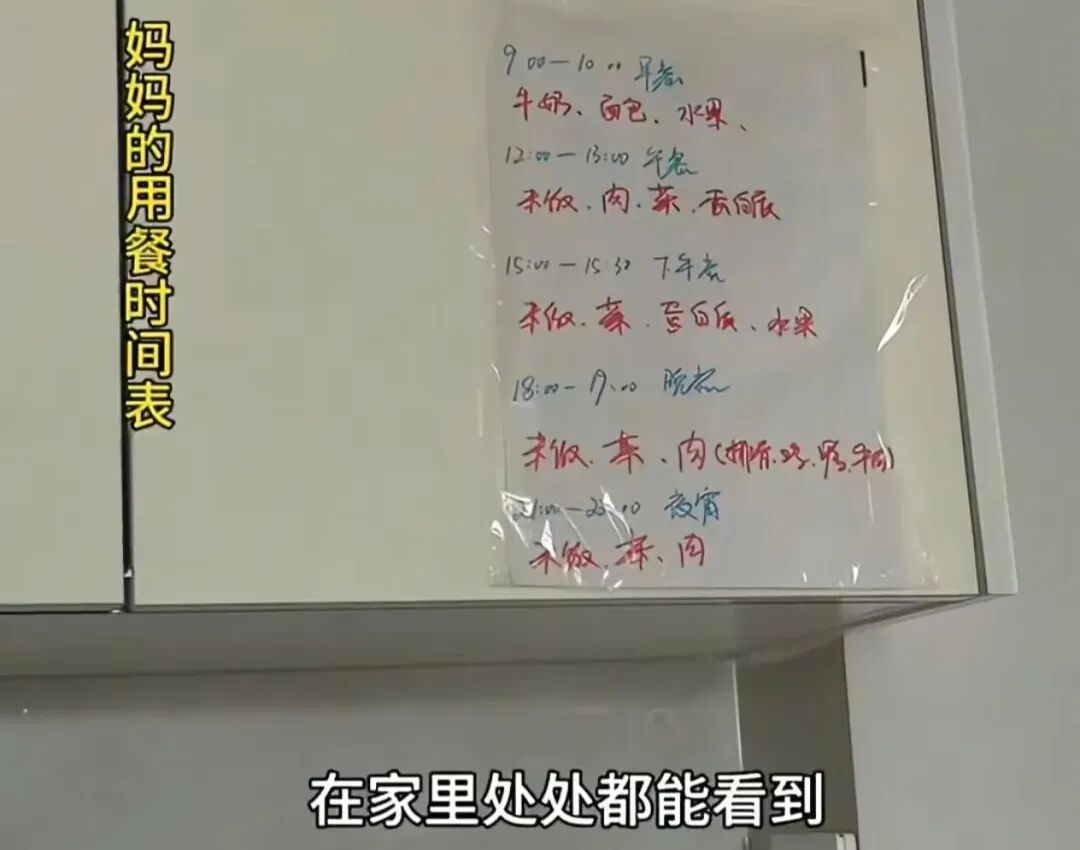 妈妈的用餐时间表
9:00—10:00 早餐
牛奶、面包、水果、
12:00—13:00 午餐
米饭、肉、菜、蛋白质
15:00—15:30 下午餐
米饭、菜、蛋白质、水果
18:00—19:00 晚餐
米饭、菜、肉(排骨、鸡、鸭、牛肉)
21:00—22:00 夜宵
米饭、菜、肉
在家里处处都能看到